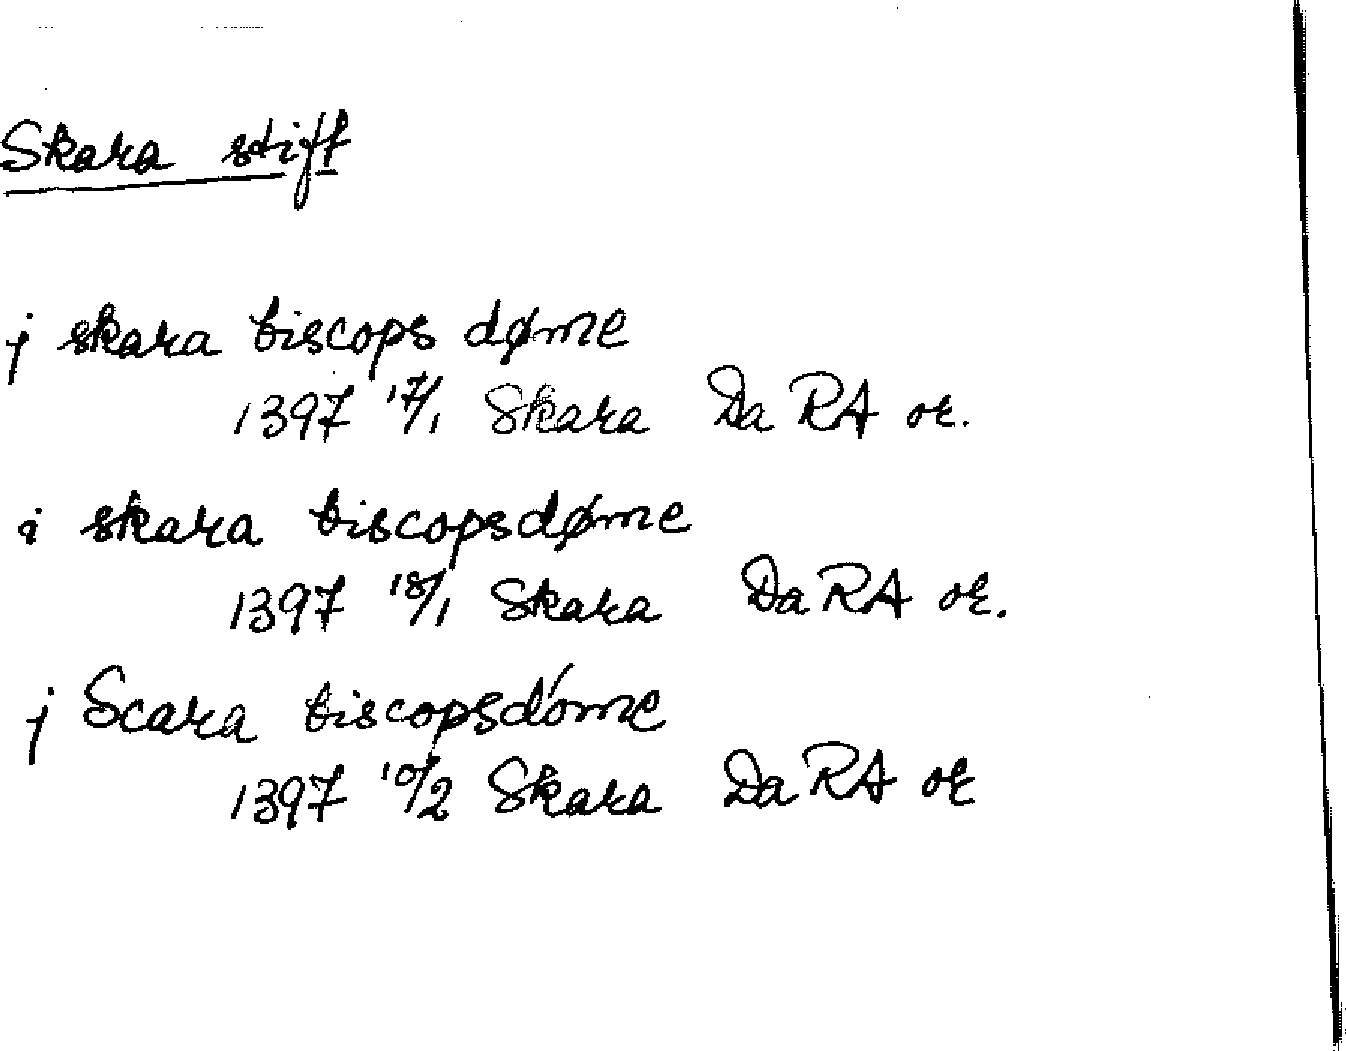 Skara stift
j skara biscops døme
1397 17/1 Skara DaRA or.
i skara biscopsdøme
1397 18/1 Skara DaRA or.
j Scara biscopsdóme
1397 10/2 Skara DaRA or